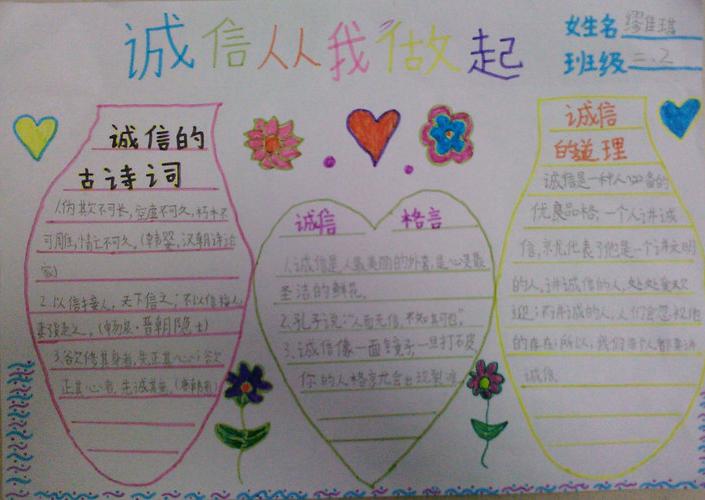 诚信从从我做起
女生名 缪佳琪
班级 三.2
诚信的
古诗词
1.伪欺不可长,空虚不可久,朽木不
可雕,情亡不可久。(韩婴,汉朝诗论
家)
2.以信接人,天下信之;不以信接人,
妻子疑之。(畅泉·晋朝隐士)
3.欲修其身者,先正其心;欲
正其心者,先诚其意。
诚信 格言
1.诚信是人最美丽的外套,是心灵最
圣洁的鲜花。
2.孔子说:“人而无信,不知其可也”
3.诚信像一面镜子,一旦打破
你的人格就会出现裂
诚信
的道理
诚信是一种人必备的
优良品格,一个人讲诚
信,就代表了他是一个讲文明
的人,讲诚信的人,处处受欢
迎;不讲诚信的人,人们会忽视他
的存在;所以,我们每个人都要讲
诚信